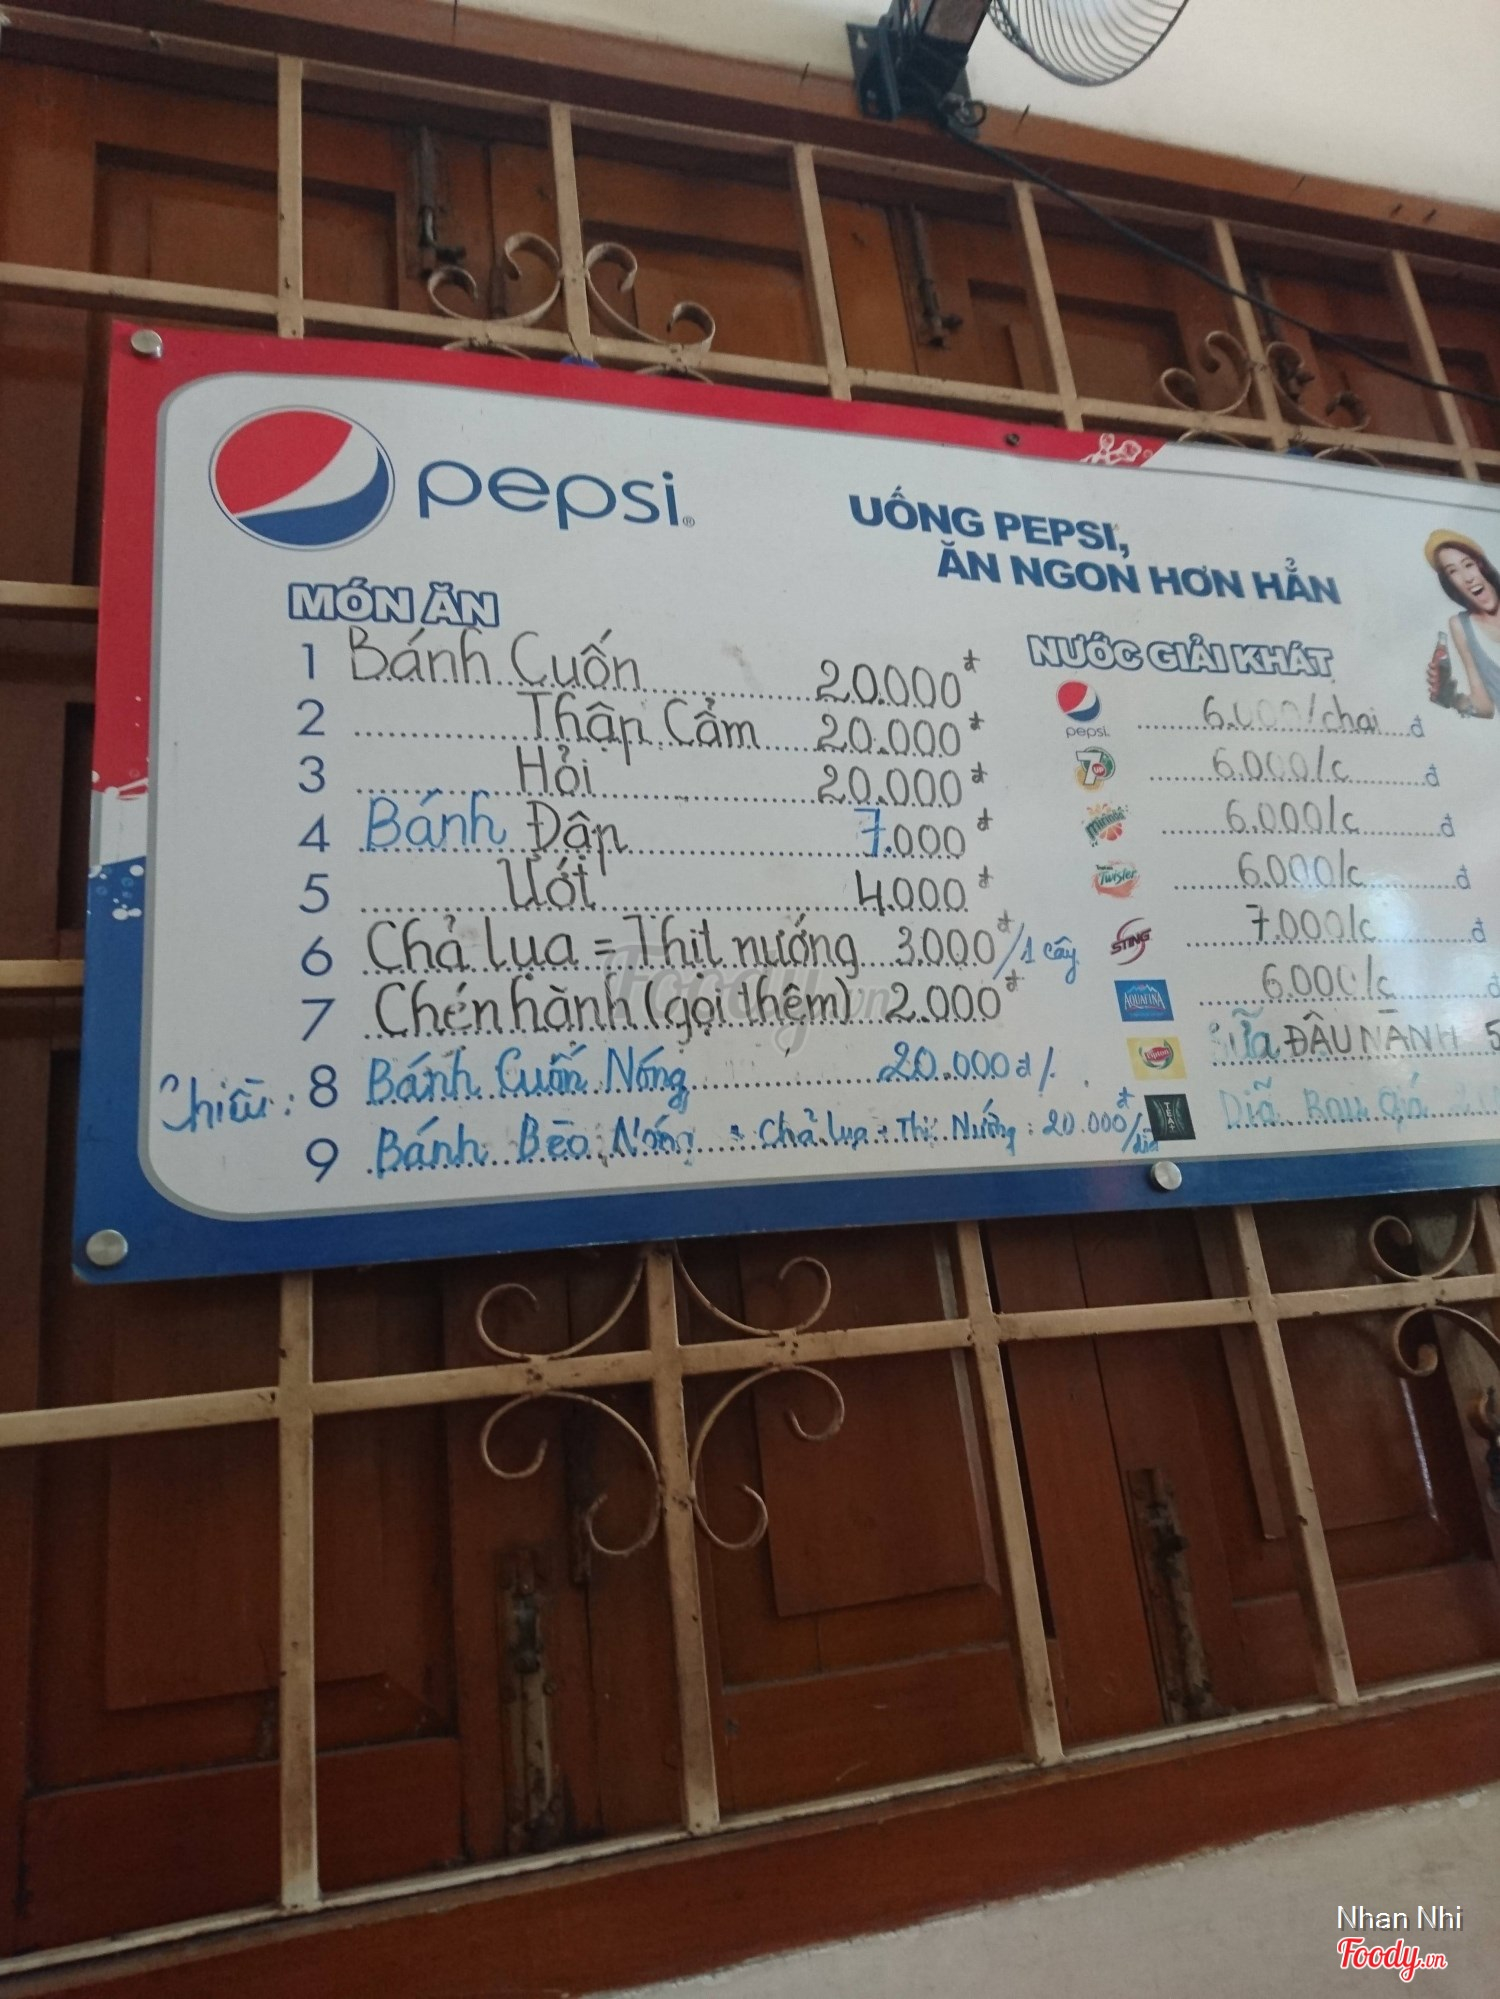 pepsi®
UỐNG PEPSI,
ĂN NGON HƠN HẲN
MÓN ĂN
1 Bánh Cuốn 20.000đ
2 Thập Cẩm 20.000đ
3 Hỏi 20.000đ
4 Bánh Đập 7.000đ
5 Ướt 4.000đ
6 Chả lụa = Thịt nướng 3.000đ/1 cây
7 Chén hành (gọi thêm) 2.000đ
Chiều: 8 Bánh Cuốn Nóng 20.000đ/
9 Bánh Bèo Nóng + Chả lụa + Thịt Nướng: 20.000đ/dĩa
NƯỚC GIẢI KHÁT
pepsi. 6.000/chai đ
7UP 6.000/c đ
Mirinda 6.000/c đ
Twister 6.000/c đ
STING 7.000/c đ
AQUAFINA 6.000/c đ
Lipton Sữa ĐẬU NÀNH 5
TEA+ Dĩa Rau giá
Foody.vn
Nhan Nhi
Foody.vn